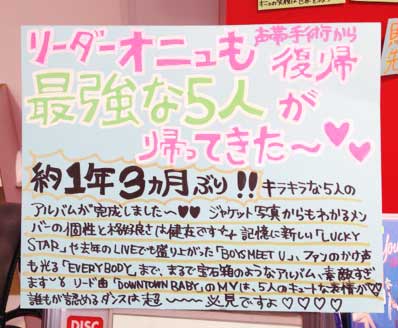 リーダーオニュも声帯手術から復帰
最強な5人が
帰ってきた〜♥♥
約1年3ヵ月ぶり!! キラキラな5人の
アルバムが完成しました〜♥♥ ジャケット写真からもわかるメン
バーの個性と格好良さは健在です 記憶に新しい「LUCKY
STAR」や去年のLIVEでも盛り上がった「BOYS MEET U」、ファンのかけ声
も光る「EVERYBODY」まで、まるで宝石箱のようなアルバム、素敵すぎ
ます〜 リード曲「DOWNTOWN BABY」のMVは、5人のキュートな表情が♡
誰もが認めるダンスは超〜〜必見ですよ♡♡♡♡
DISC